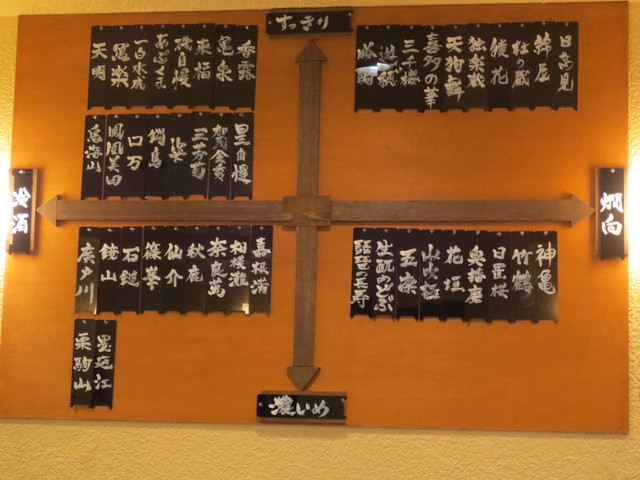 すっきり
日高見
錦屋
杜の蔵
綾花
独楽蔵
天狗舞
喜多の華
三千櫻
香露
亀泉
来福
磯自慢
あぶくま
一白水成
寫楽
天明
星自慢
賀茂金秀
三芳菊
姿
鍋島
口万
鳳凰美田
鳥海山
冷酒
燗向
神亀
竹鶴
日置桜
奥播磨
花垣
山吹極
五凛
生酛のどぶ
琵琶長寿
嘉根満
相模灘
奈良萬
秋鹿
仙介
篠峯
石鎚
鏡山
廣戸川
墨廼江
栗駒山
濃いめ